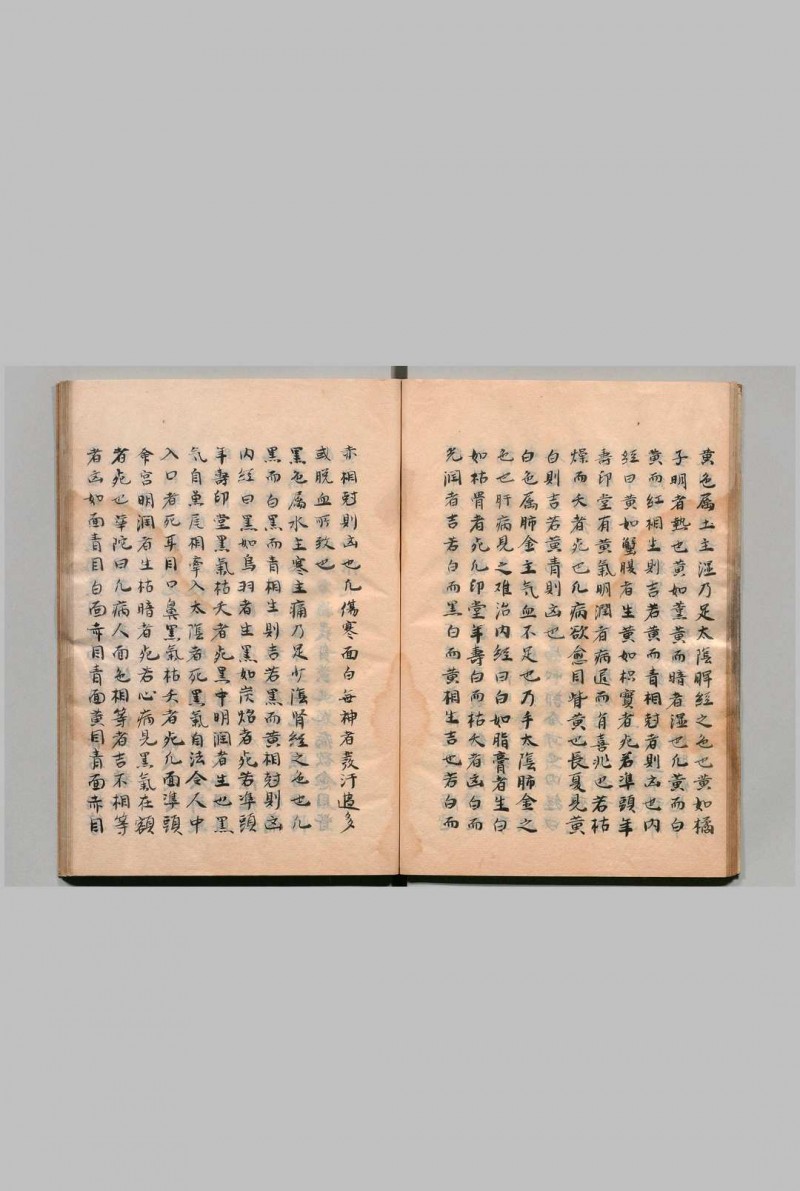 黄色属土主湿乃足太陰脾経之色也黄如橘
子明者熱也黄如薫黄而暗者湿也凡黄而白
黄而紅相生則吉若黄而青相尅者則凶也内
経曰黄如蟹腹者生黄如枳實者死若準頭年
壽印堂有黄氣明潤者病退而有喜兆也若枯
燥而夭者死也凡病欲愈目眥黄也長夏見黄
白則吉若黄青則凶也
白色属肺金主氣血不足也乃手太陰肺金之
色也肝病見之难治内経曰白如脂膏者生白
如枯骨者死凡印堂年壽白而枯夭者凶白而
光潤者吉若白而黒白而黄相生吉也若白而
赤相尅則凶也凡傷寒面白每神者發汗過多
或脱血所致也
黒色属水主寒主痛乃足少陰腎経之色也凡
黒而白黒而青相生則吉若黒而黄相尅則凶
内経曰黒如烏羽者生黒如炭焰者死若準頭
年壽印堂黒氣枯夭者死黒中明潤者生也黒
气自魚尾相牽入太陰者死黒氣自法令人中
入口者死耳目口鼻黒氣枯夭者死凡面準頭
命宮明潤者生枯暗者死若心病見黒氣在額
者死也華陀曰凡病人面色相等者吉不相等
者凶如面青目白面赤目青面黄目青面赤目